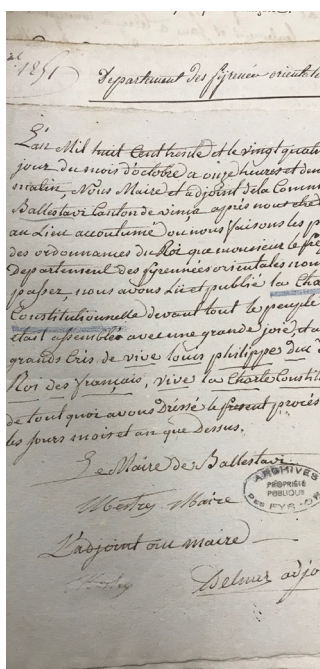 1851
Departement des pyrenées orientale
L'an Mil huit Cent trente et le vingt quat
jour du mois d'octobre a onze heures et dem
matin, Nous Maire et adjoint de la Comm
Ballestavi Canton de vinça après nous etre
au Lieu accoutumé ou nous faisons les p
des ordonnances du Roi que monsieur le pre
Departement des pyrénnées orientales nous
passez, nous avons Lu et publié la Cha
Constitutionnelle devant tout le peuple
etait assemblée avec une grande joie et a
grands Cris de vive louis philippe du
Roi des français, vive la Charte Constit
de tout quoi avons Dréssé le present procès
les jours mois et an que Dessus.
Le Maire de Ballestavi
Mestres Maire
L'adjoint au maire
Delmer adjo
ARCHIVES
PROPRIÉTÉ
PUBLIQUE
DES PYR-OR